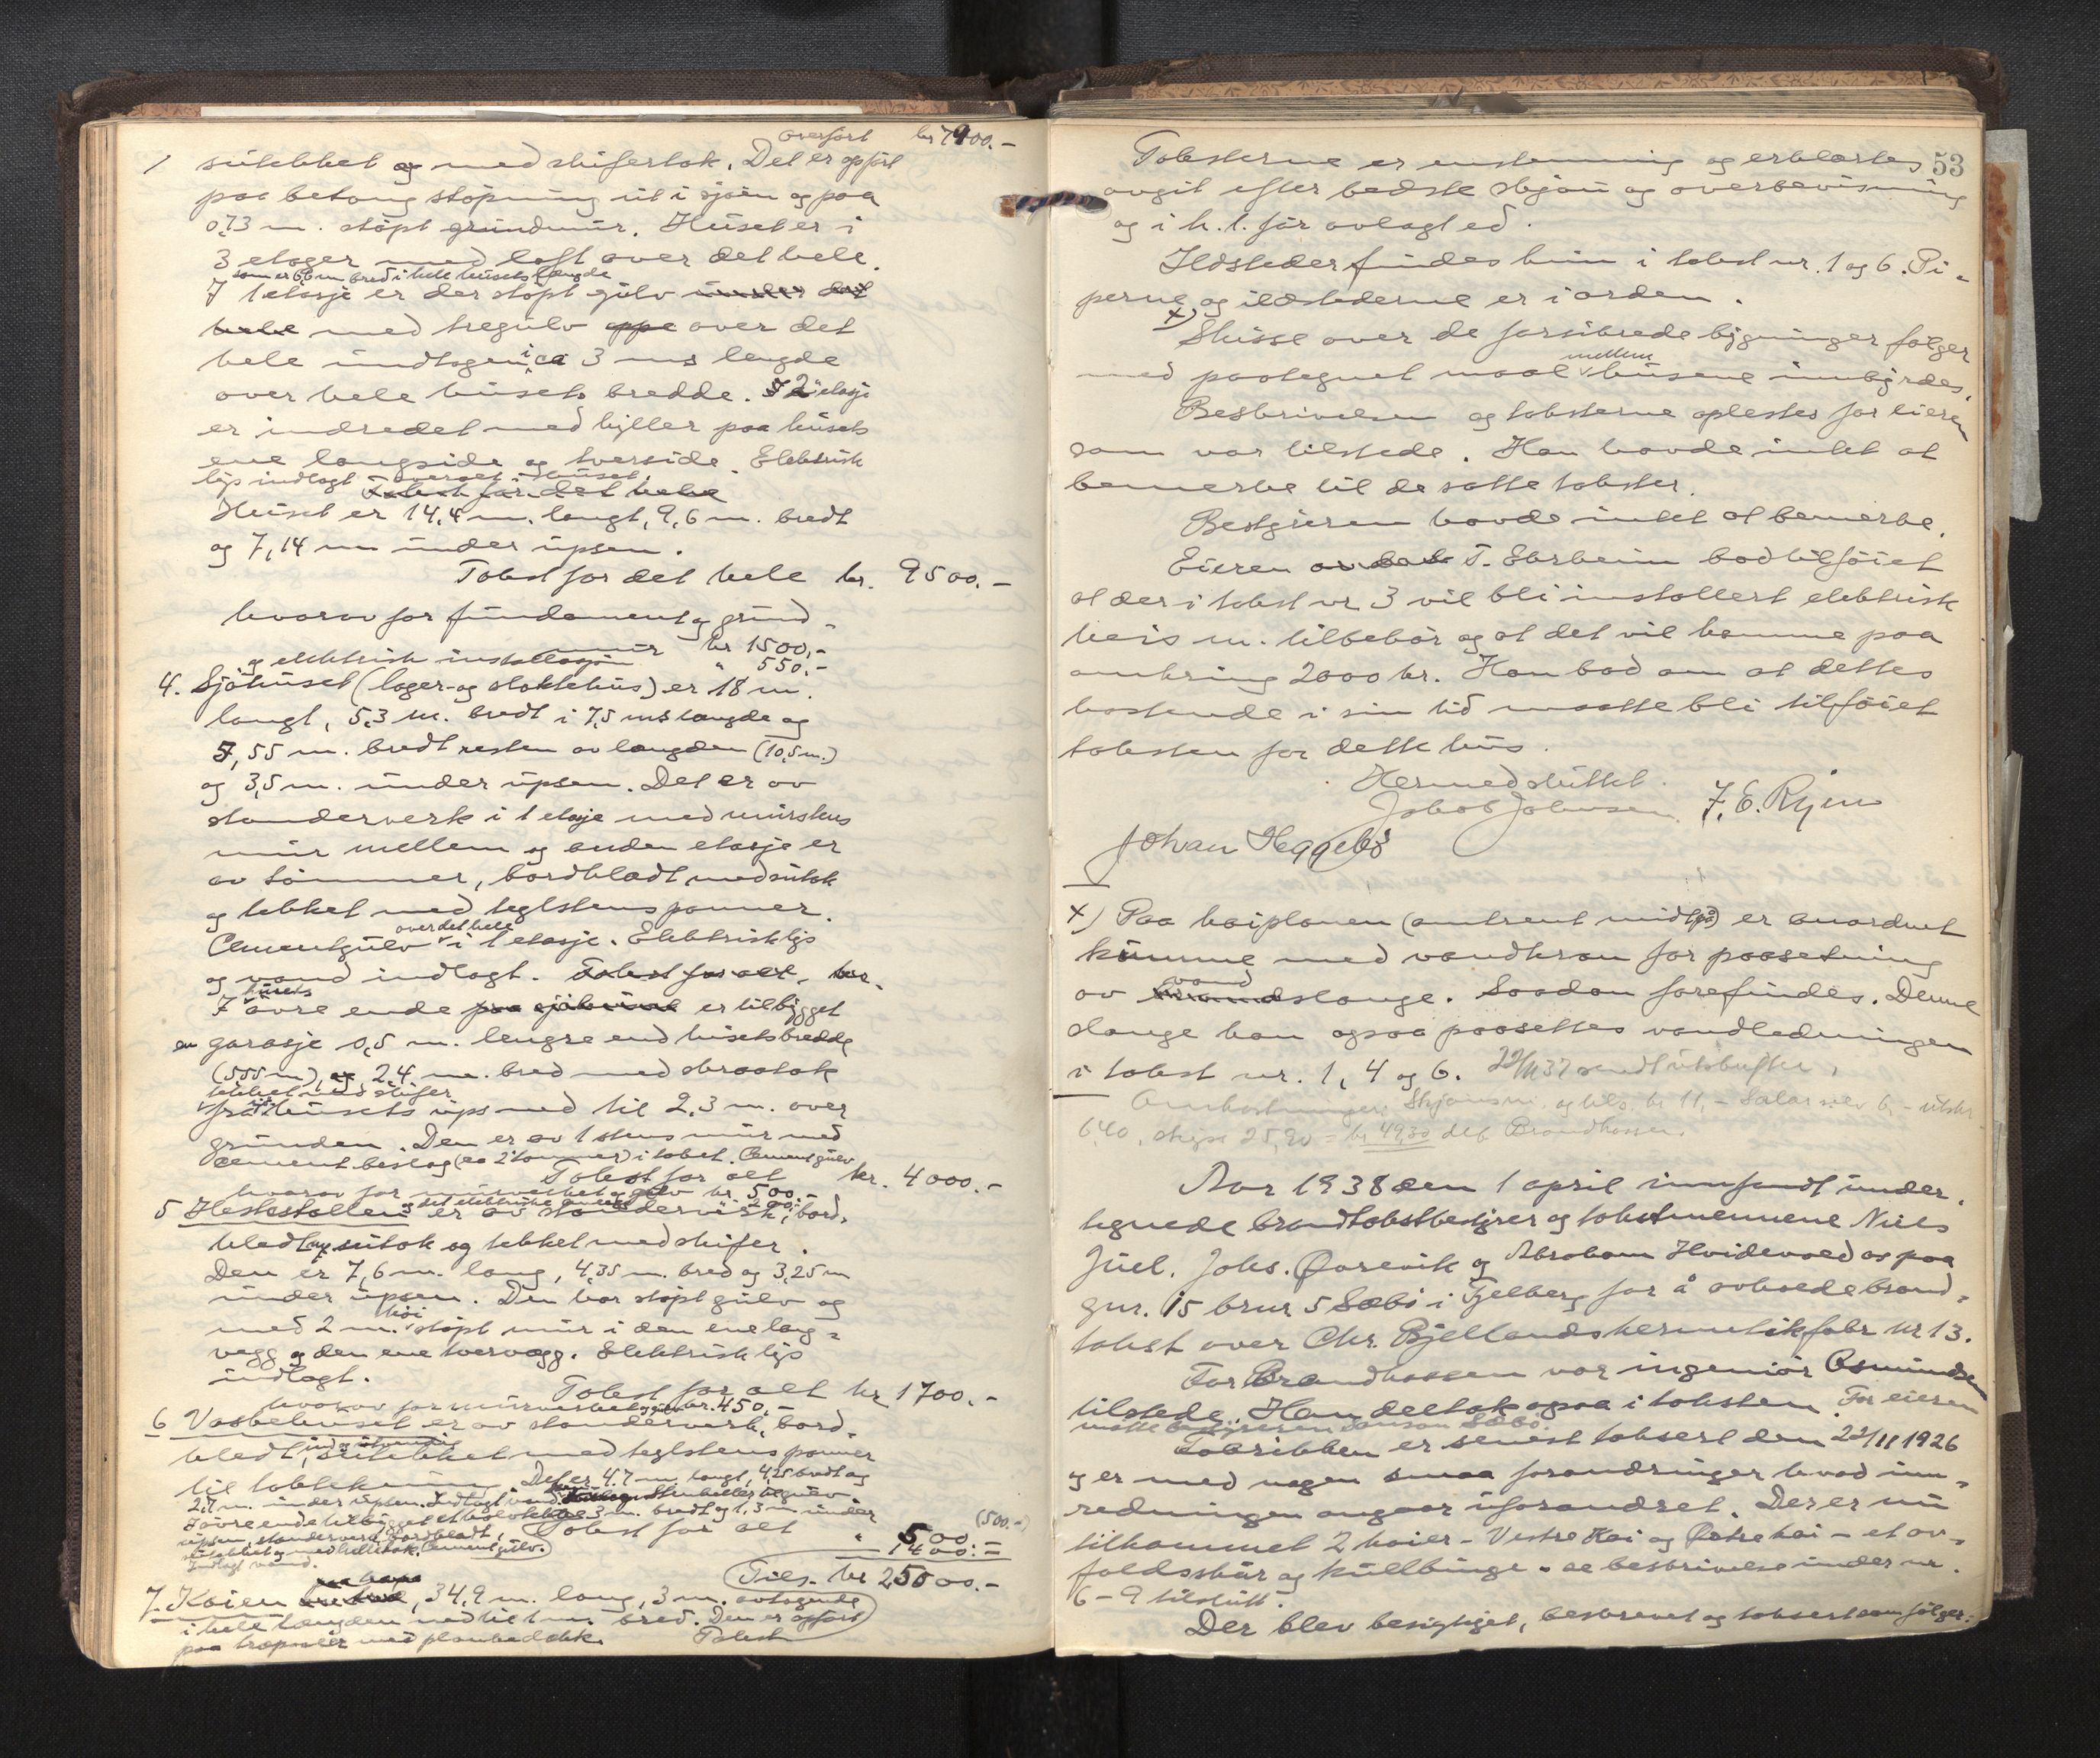 overført kr 7900.-
1 sutekket og med skifertak. Det er opført
paa betong støpning ut i sjøen og paa
0,73 m. støpt grundmur. Huset er i
3 etager med loft over det hele.
som er 6,6 m bred i hele husets længde
I 1 etasje er der støpt gulv under det
hele med tregulv oppe over det
hele undtagen i ca 3 ms lengde
over hele husets bredde. I 2 etasje
er indredet med hyller paa husets
ene langside og tverside. Elektrisk
lys indlagt overalt i huset.
Takst for det hele
Huset er 14,4 m. langt, 9,6 m. bredt
og 7,14 m under upsen.
Takst for det hele kr. 9500.-
hvorav for fundament og grund-
mur kr 1500,-
og elektrisk installasjon " 550.-
4. Sjøhuset (lager- og slaktehus) er 18 m.
langt, 5,3 m. bredt i 7,5 ms længde og
5,55 m. bredt resten av længden (10,5 m.)
og 3,5 m. under upsen. Det er av
standerverk i 1 etasje med murstens
mur mellem og anden etasje er
av tømmer, bordklædt, med sutak
og tekket med teglstenspanner.
over det hele
Cementgulv i 1 etasje. Elektrisk lys
og vand indlagt. Takst for alt, kr.
husets
I øvre ende paa sjøhuset er tilbygget
en garasje 0,5 m. lengre end husets bredde
(5,55 m), og 2,4 m. bred med skraatak
tekket med skifer
fra husets ups ned til 2,3 m. over
grunden. Den er av 1 stens mur med
cement beslag (ca 2 tommer) i taket. Cementgulv
Takst for alt kr. 4000.-
hvorav for murverket og gulv kr. 500.-
og det elektriske anlegg 200.-
5 Hestestallen er av standerverk, bord-
klædt, sutak og tekket med skifer.
Den er 7,6 m. lang, 4,35 m. bred og 3,25 m
under upsen. Den har støpt gulv og
høi
med 2 m. støpt mur i den ene lang-
vegg og den ene tvervegg. Elektrisk lys
indlagt.
Takst for alt kr 1700.-
hvorav for murverket og gulv kr. 450.-
6 Vaskehuset er av standerverk, bord-
klædt, ind og utvendig
sutekket med teglstens panner
til taktekning. Det er 4,7 m. langt, 4,25 bredt og
2,7 m. under upsen. Indlagt vand. Stenheller til gulv
I øvre ende tilbygget et 3 m. bredt og 1,3 m. under
upsen, standerverk, bordklædt, Takst for alt " 500.- (500.-)
sutekket og med helletak. Cementgulv.
Indlagt vand.
Tils. kr 25500.-
7 Kaien, 34,9 m. lang, 3 m. avtagende
i hele længden ned til 1 m. bred. Den er opført
paa træpæler med plankedekke. Takst
53
Taksterne er enstemmig og erklærtes
avgit efter bedste skjøn og overbevisning
og i h. t. før avlagt ed.
Ildsteder findes kun i takst nr. 1 og 6. Pi-
perne og ildstederne er i orden.
x)
Skisse over de forsikrede bygninger følger
mellem
med paategnet maal husene innbyrdes.
Beskrivelsen og taksterne oplestes for eieren
som var tilstede. Han havde intet at
bemerke til de satte takster.
Bestyreren havde intet at bemerke.
Eieren T. Ekrheim bad tilføiet
at der i takst nr 3 vil bli installert elektrisk
heis m. tilbehør og at det vil komme paa
omkring 2000 kr. Han bad om at dettes
kostende i sin tid maatte bli tilføiet
taksten for dette hus.
Hermed sluttet.
Jakob Johnsen. F. E. Rijm
Johan Heggebø
x) Paa kaiplanen (omtrent midtpå) er anordnet
kumme med vandkran for paasetning
vand
av slange. Saadan forefindes. Denne
slange kan ogsaa paasettes vandledningen
i takst nr. 1, 4 og 6. 22/11 37 sendt utskrifter.
Omkostninger: Skjønsm. og tils. kr 11,- Salar selv 6,- utskr
6,40, skyss 25,90 = kr 49,30 deb. Brandkassen.
Aar 1938 den 1 april innfandt under-
tegnede brandtakstbestyrer og takstmennene Niels
Juel, Johs. Øvrevik og Abraham Hvidevold os paa
gnr. 15 brnr 5 Sæbø i Fjelberg for å avholde brand-
takst over Chr. Bjellands hermetikfabr nr 13.
For Brandkassen var ingeniør Osmundsen
tilstede. Han deltok ogsaa i taksten. For eieren
møtte bestyreren Jonson Sæbø.
Fabrikken er senest taksert den 22/11 1926
og er med nogen smaa forandringer hvad inn-
redningen angaar uforandret. Der er nu
tilkommet 2 kaier - Vestre Kai og Østre kai - et av-
faldsskur og kullbinge - se beskrivelse under nr.
6 - 9 tilslutt.
Der blev besigtiget, beskrevet og taksert som følger: